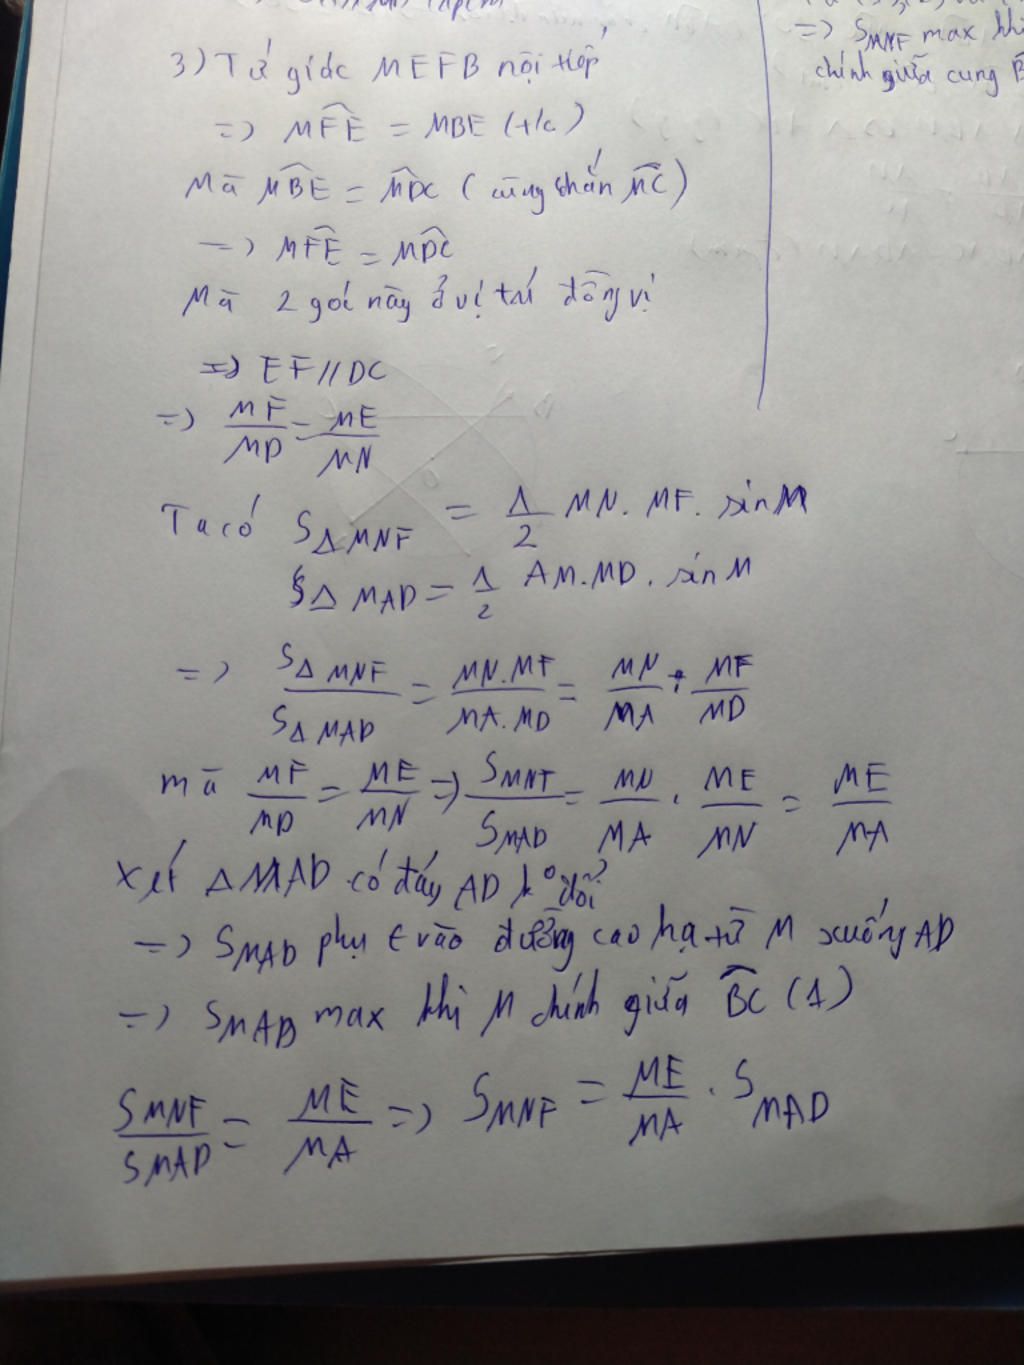 3) Tứ giác MEFB nội tiếp
=> MF̂E = MBE (t/c)
Mà MB̂E = MD̂C (cùng chắn M͡C)
=> MF̂E = MD̂C
Mà 2 góc này ở vị trí đồng vị
=> EF // DC
=> MF/MD = ME/MN
Ta có S△MNF = 1/2 MN. MF. sin M
S△MAD = 1/2 AM.MD. sin M
=> S△MNF/S△MAD = MN.MF/MA.MD = MN/MA . MF/MD
mà MF/MD = ME/MN => SMNF/SMAD = MN/MA . ME/MN = ME/MA
Xét △MAD có đáy AD k° đổi
=> SMAD phụ t vào đường cao hạ từ M xuống AD
=> SMAD max khi M chính giữa B͡C (1)
SMNF/SMAD = ME/MA => SMNF = ME/MA . SMAD
=> SMNF max khi
chính giữa cung B